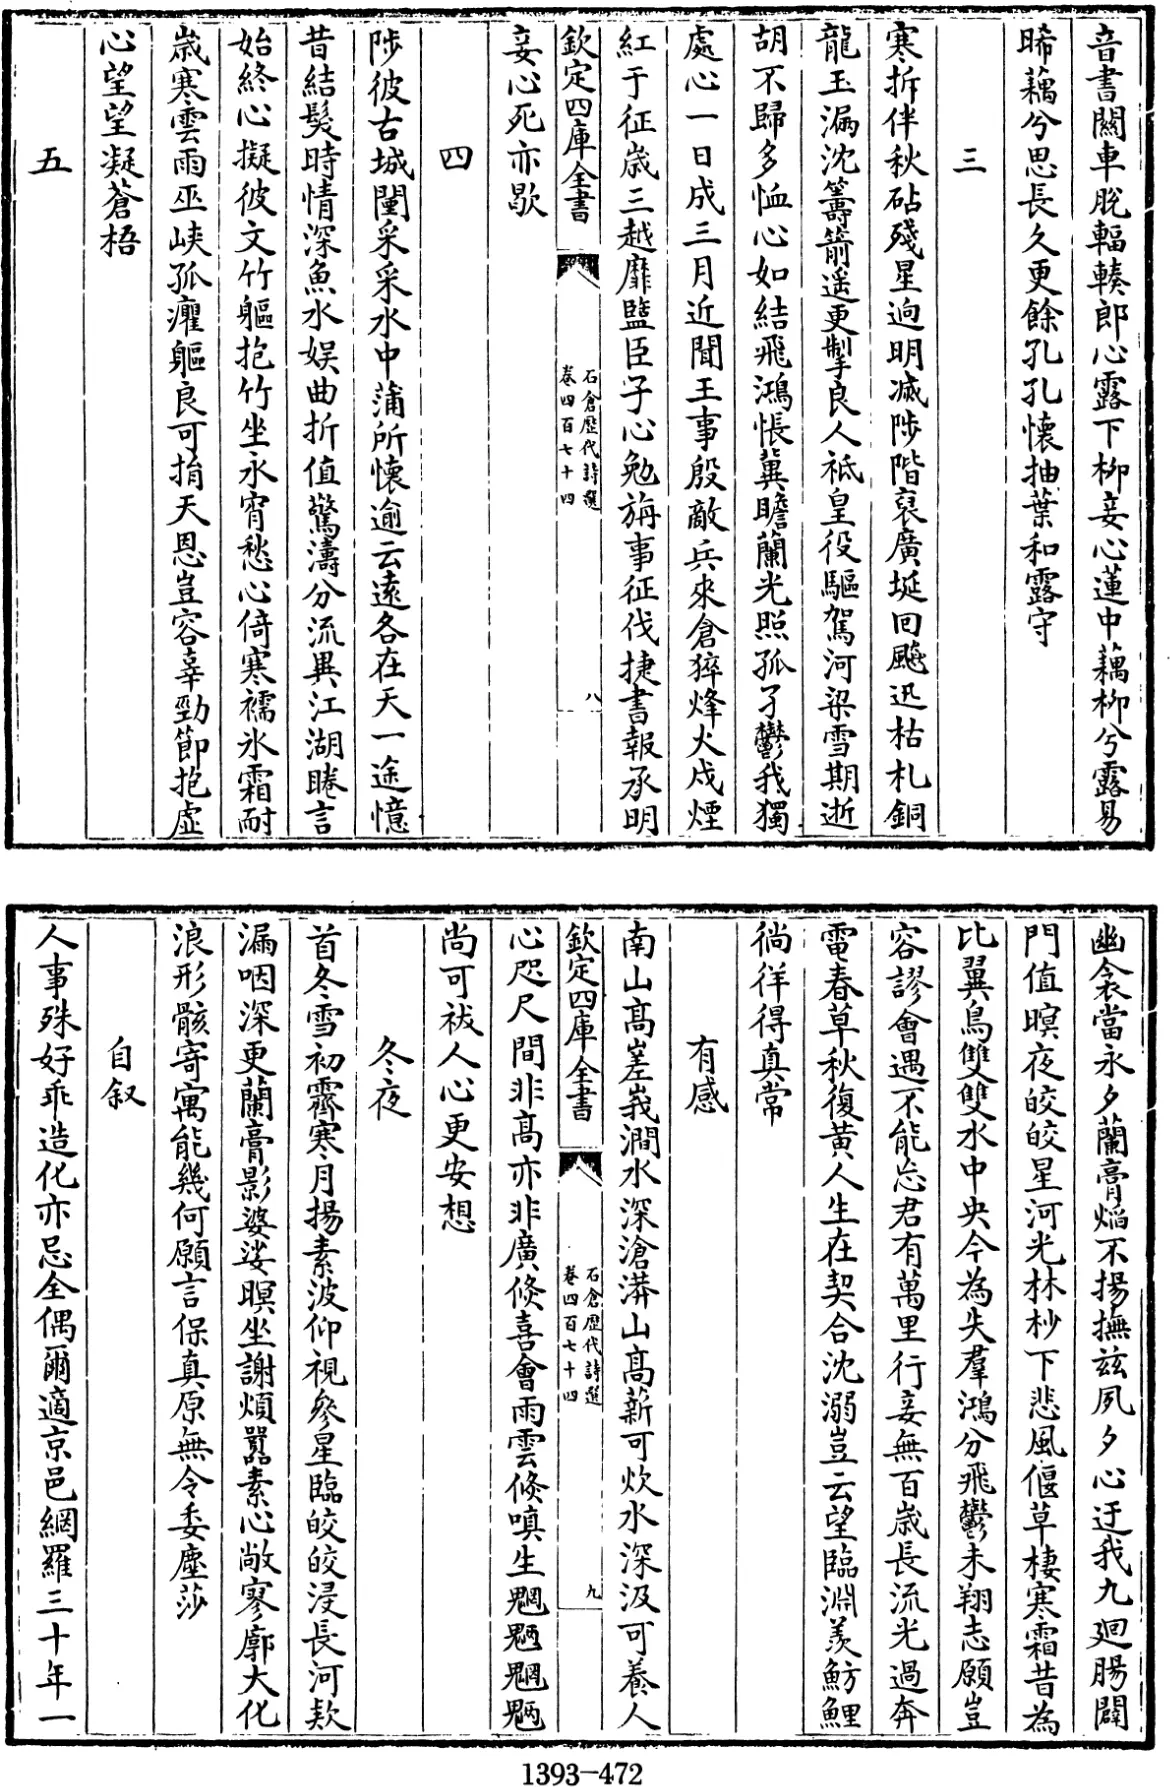 音書闗車脱輻輳郎心露下柳妾心蓮中藕柳兮露易
晞藕兮思長久更餘孔孔懐抽葉和露守
三
寒拆伴秋砧殘星逈明滅陟階裒廣埏回飈迅枯札銅
龍玉漏沈籌箭遥更掣良人祗皇役驅駕河梁雪期逝
胡不歸多恤心如結飛鴻悵冀瞻蘭光照孤孑鬱我獨
處心一日成三月近聞王事殷敵兵來倉猝烽火戍煙
紅于征嵗三越靡盬臣子心勉旃事征伐捷書報承明
欽定四庫全書
石倉歴代詩選
卷四百七十四
八
妾心死亦歇
四
陟彼古城闉采采水中蒲所懐逾云遠各在天一途憶
昔結髪時情深魚水娱曲折值驚濤分流異江湖睠言
始終心擬彼文竹軀抱竹坐永宵愁心倚寒襦氷霜耐
嵗寒雲雨巫峽孤癯軀良可捐天恩豈容辜勁節抱虚
心望望凝蒼梧
五
幽衾當永夕蘭膏焰不揚撫兹夙夕心迂我九廻腸闢
門值暝夜皎皎星河光林杪下悲風偃草棲寒霜昔為
比翼鳥雙雙水中央今為失羣鴻分飛鬱未翔志願豈
容謬會遇不能忘君有萬里行妾無百嵗長流光過奔
電春草秋復黄人生在契合沈溺豈云望臨淵羡魴鯉
徜徉得真常
有感
南山髙嵳峩澗水深滄漭山髙薪可炊水深汲可養人
欽定四庫全書
石倉歴代詩選
卷四百七十四
九
心咫尺間非髙亦非廣倐喜會雨雲倐嗔生魍魎魍魎
尚可祓人心更安想
冬夜
首冬雪初霽寒月揚素波仰視參星臨皎皎浸長河欵
漏咽深更蘭膏影婆娑暝坐謝煩囂素心敞寥廓大化
浪形骸寄寓能幾何願言保真原無令委塵莎
自叙
人事殊好乖造化亦忌全偶爾適京邑網羅三十年一
1393-472